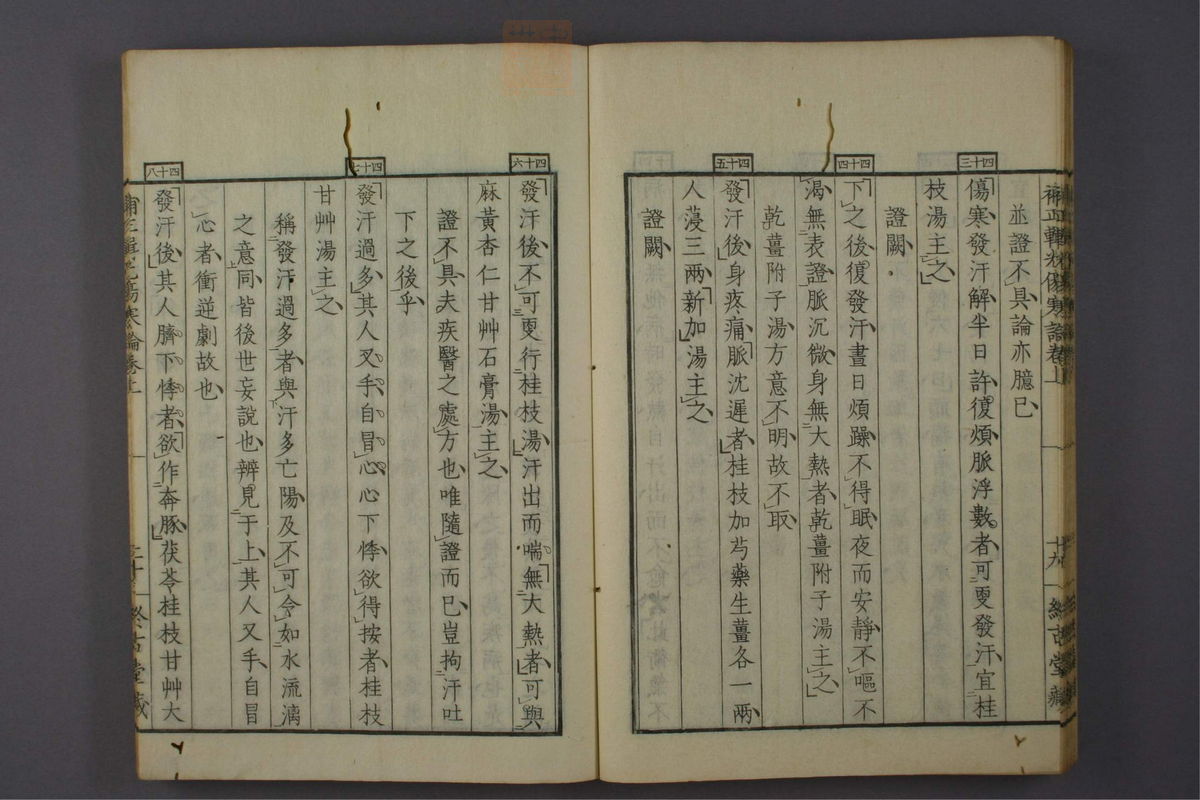 並證不具論亦臆已
四十三
傷寒發汗解半日許復煩脈浮數者可更發汗宜桂
枝湯主之
證闕
四十四
下之後復發汗晝日煩躁不得眠夜而安靜不嘔不
渴無表證脈沉微身無大熱者乾薑附子湯主之
乾薑附子湯方意不明故不取
四十五
發汗後身疼痛脈沈遲者桂枝加芍藥生薑各一兩
人蓡三兩新加湯主之
證闕
四十六
發汗後不可更行桂枝湯汗出而喘無大熱者可與
麻黃杏仁甘艸石膏湯主之
證不具夫疾醫之處方也唯隨證而已豈拘汗吐
下之後乎
四十七
發汗過多其人叉手自冒心心下悸欲得按者桂枝
甘艸湯主之
稱發汗過多者與汗多亡陽及不可令如水流漓
之意同皆後世妄說也辨見于上其人叉手自冒
心者衝逆劇故也
四十八
發汗後其人臍下悸者欲作奔豚茯苓桂枝甘艸大
傷寒論卷上
十九
終古堂藏